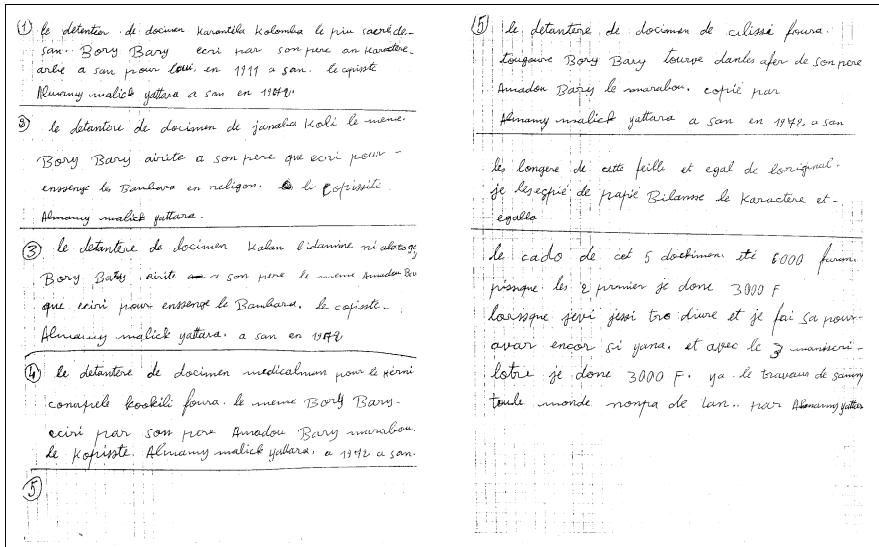 ① le détenteur de docimen Karantéla Kolomba le piu sacré de-
san. Bory Bary ecri par son pere an Karactere.
arbe a san pour loui. en 1911 a san. le copisste
Almamy malick yattara a san en 1972.
② le detantere de docimen de jamalia Koli le meme.
Bory Bary airite a son pere que ecri pour -
enssenge les Banbara en religon. le copissite.
Almamy malick yattara.
③ le detantere de docimen Kalan
Bory Bary airite a son pere le meme Amadou
que eciri pour enssenge le Banbara. le copisste.
Almamy malick yattara. a san en 1972
④ le detantere de docimen medicalman pour le herni
conapele kookili foura. le meme Bory Bary-
eciri par son pere Amadou Bary marabou.
le Kopisste. Almamy malick yattara. a 1972 a san.
⑤
⑤ le detantere de docimen de cilissi foura.
tougoure Bory Bary tourve danles afer de son pere
Amadou Bary le marabou. copié par
Almamy malick yattara a san en 1972. a san
les longere de cette feille et egal de loriginal.
je papié Bilansse le Karactere et -
egalle
le cado de cet 5 dockimen. été 6000 faran.
pissque les 2 premier je done 3000 F
lorssque jevi jessi tro diure et je fai sa pour-
avar encor si yana. et avec le 3 maniscri-
lotre je done 3000 F. ya le travaus de sanny
toule monde nonpa de lan.. par Almamy yattara